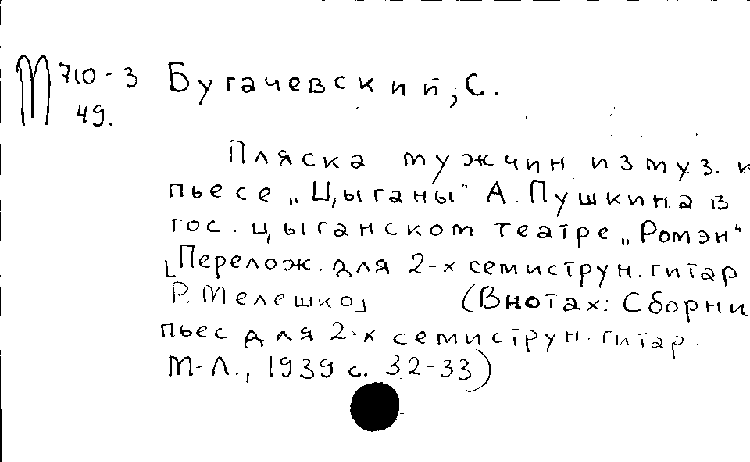 М 710-3 Бугачевский, С.
49.
Пляска мужчин из муз. к
пьесе „Цыганы" А. Пушкина в
гос. цыганском театре „Ромэн"
[Перелож. для 2-х семиструн. гитар
Р. Мелешко] (В нотах: Сборни
пьес для 2-х семиструн. гитар.
М-Л., 1939 с. 32-33)